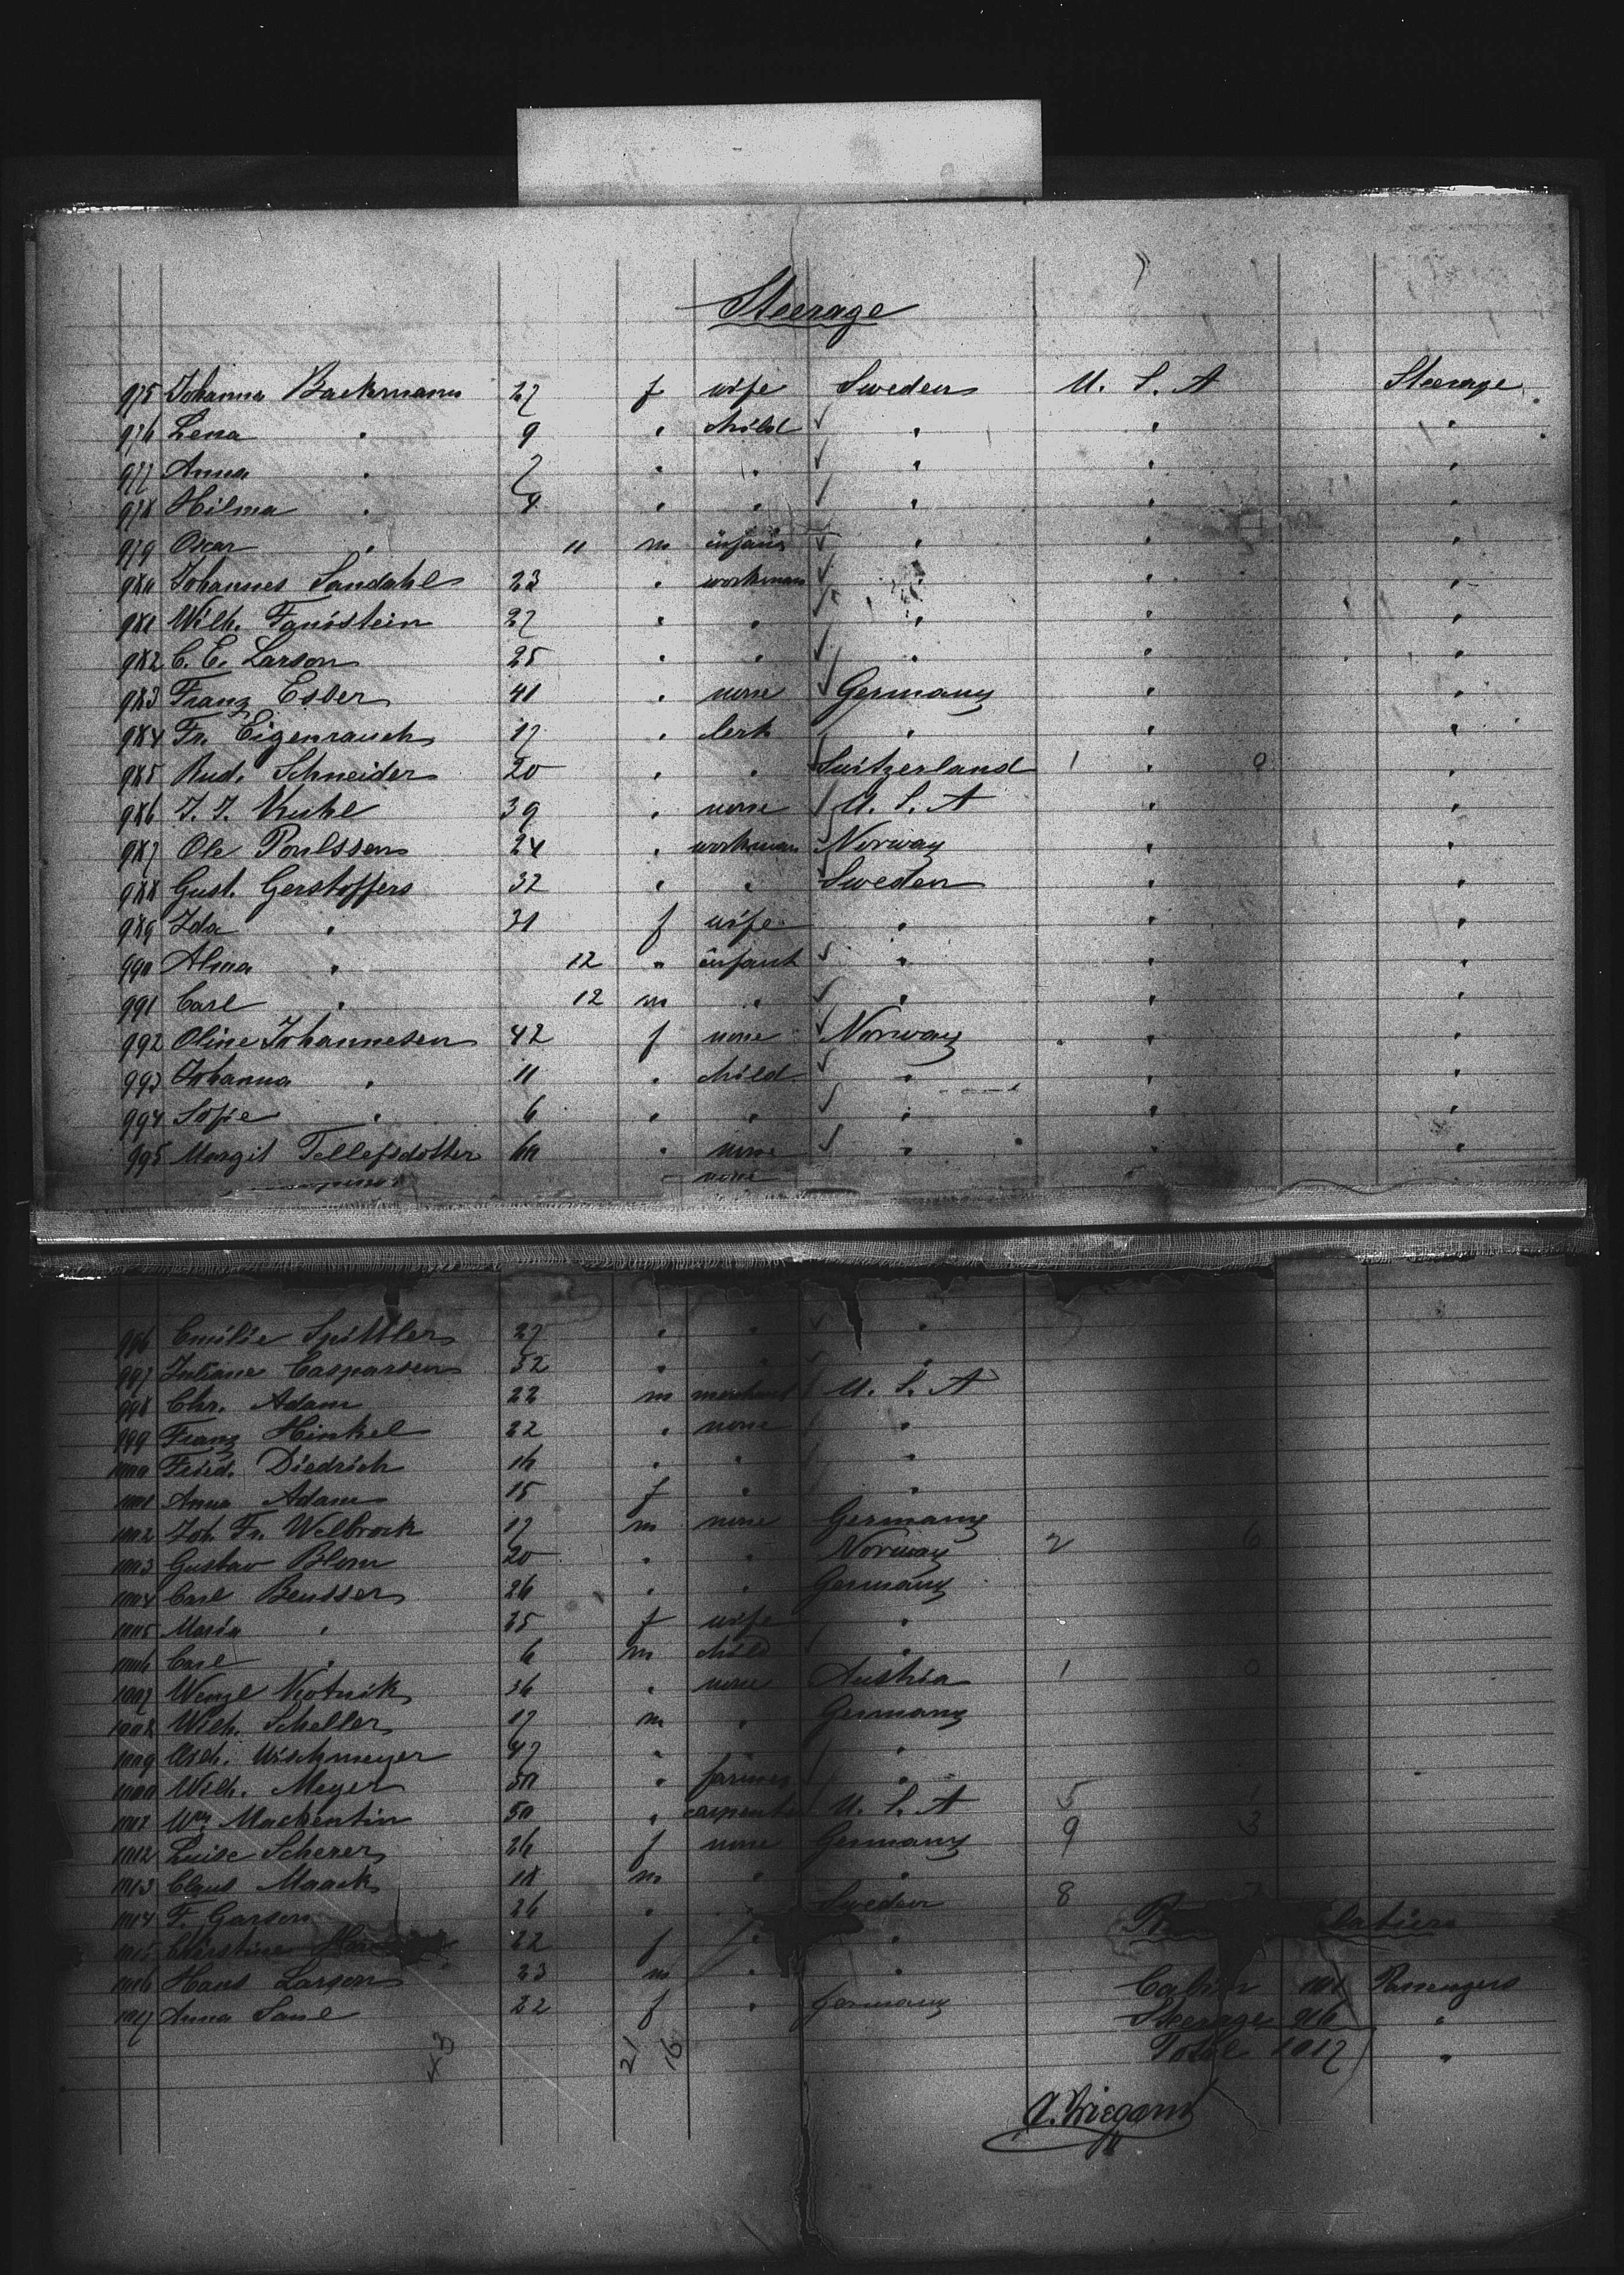 Steerage
975 Johanna Backmann 27 f wife Sweden U. S. A Steerage
976 Lena " 9 " child " " "
977 Anna " 7 " " " " "
978 Hilma " 4 " " " " "
979 Oscar " 11 m infant " " "
980 Johannes Sandahl 23 " workman " " "
981 Wilh. 27 " " " " "
982 C. E. Larson 25 " " " " "
983 Franz Esber 41 " none Germany " "
984 Fr. Eigenrauch 17 " clerk " " "
985 Rud. Schneider 20 " " Switzerland 1 " 0 "
986 39 " none U. S. A " "
987 Ole Poulssen 24 " workman Norway " "
988 Gust. Gerstoffers 32 " " Sweden " "
989 Ida " 31 f wife " " "
990 Alma " 12 " infant " " "
991 Carl " 12 m " " " "
992 Oline Johannesen 42 f none Norway " "
993 Johanna " 11 " child " " "
994 Sofie " 6 " " " " "
995 Margit Tellefsdotter 60 " none " " "
none
996 Emilie Spittler 27 " " "
997 Juliane Casparsen 32 " " "
998 Chr. Adam 22 m merchant U. S. A
999 Franz Hinkel 22 " none "
1000 Fried. Diedrich 16 " " "
1001 Anna Adam 15 f " "
1002 Joh. Fr. Welbrock 17 m none Germany
1003 Gustav Blom 20 " " Norway 2 6
1004 Carl Beusser 26 " " Germany
1005 Maria " 25 f wife "
1006 Carl " 6 m child "
1007 Wenzl Kotnik 36 " none Austria 1 0
1008 Wilh. Scheller 17 m " Germany
1009 Wischmeyer 47 " "
1010 Wilh. Meyer 50 " farmer "
1011 Wm Mackentin 50 " carpenter U. S. A 5 1
1012 Luise Scherer 26 f none Germany 9 3
1013 Claus Maack 18 m " "
1014 F. Garson 26 " " Sweden 8
1015 Christine 22 f " "
1016 Hans Larson 23 m " "
1017 Anna 22 f " Germany
Cabin 101 Passengers
Steerage 916 "
Total 1017 "
43 21 16